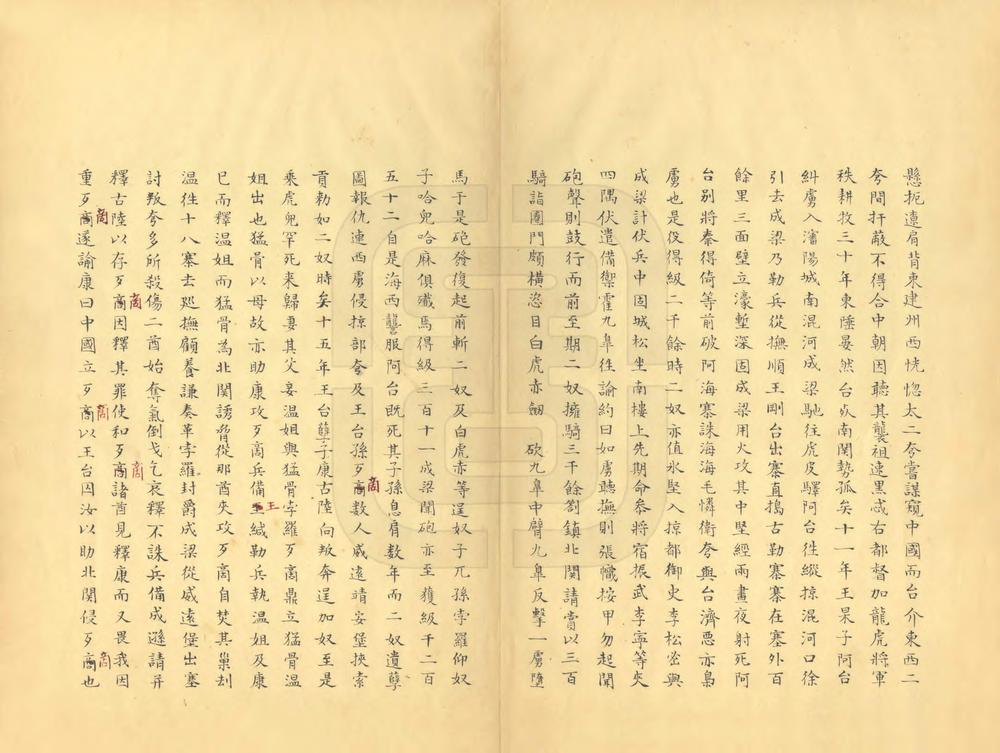 懸扼遼肩背東建州西恍惚太二夸嘗謀窺中國而台介東西二
夸間扞蔽不得合中朝因聽其襲祖速黑忒右都督加龍虎將軍
秩耕牧三十年東陲晏然台歿南関勢孤矣十一年王杲子阿台
糾虜入瀋陽城南混河成梁馳往虎皮驛阿台徃縱掠混河口徐
引去成梁乃勒兵從撫順王剛台出寨直搗古勒寨寨在塞外百
餘里三面壁立濠塹深固成梁用火攻其中堅經兩晝夜射死阿
台别將秦得倚等前破阿海寨誅海海毛憐衛夸與台濟惡亦梟
虜也是役得級二千餘時二奴亦值氷堅入掠都御史李松宻與
成梁計伏兵中固城松坐南樓上先期命叅將宿振武李寧等夾
四隅伏遣備禦霍九皋徃諭約曰如虜聽撫則張幟按甲勿起聞
砲聲則鼓行而前至期二奴擁騎三千餘劄鎮北関請賞以三百
騎詣圍門頗横恣目白虎亦劒 砍九皋中臂九皋反擊一虜墮
馬于是砲發復起前斬二奴及白虎亦等逞奴子兀孫孛羅仰奴
子哈兒哈麻俱殲馬得級三百十一成梁聞砲亦至獲級千二百
五十二自是海西讋服阿台既死其子孫息肩数年而二奴遺孽
圖報仇連西虜侵掠部夸及王台孫歹商商数人威遠靖安堡挾索
貢勅如二奴時矣十五年王台孽子康古陸向叛奔逞加奴至是
乘虎兒罕死来歸妻其父妾温姐與猛骨孛羅歹商鼎立猛骨温
姐出也猛骨以母故亦助康攻歹商兵備王王緘勒兵執温姐及康
已而釋温姐而猛骨為北関誘脅從那酋夾攻歹商自焚其巢刦
温徃十八寨去廵撫顧養謙奏革孛羅封爵成梁從威遠堡出塞
討叛夸多所殺傷二酋始奪氣倒戈乞哀釋不誅兵備成遜請并
釋古陸以存歹商商因釋其罪使和歹商商諸酋見釋康而又畏我因
重歹商商遂諭康曰中國立歹商商以王台囚汝以助北関侵歹商商也